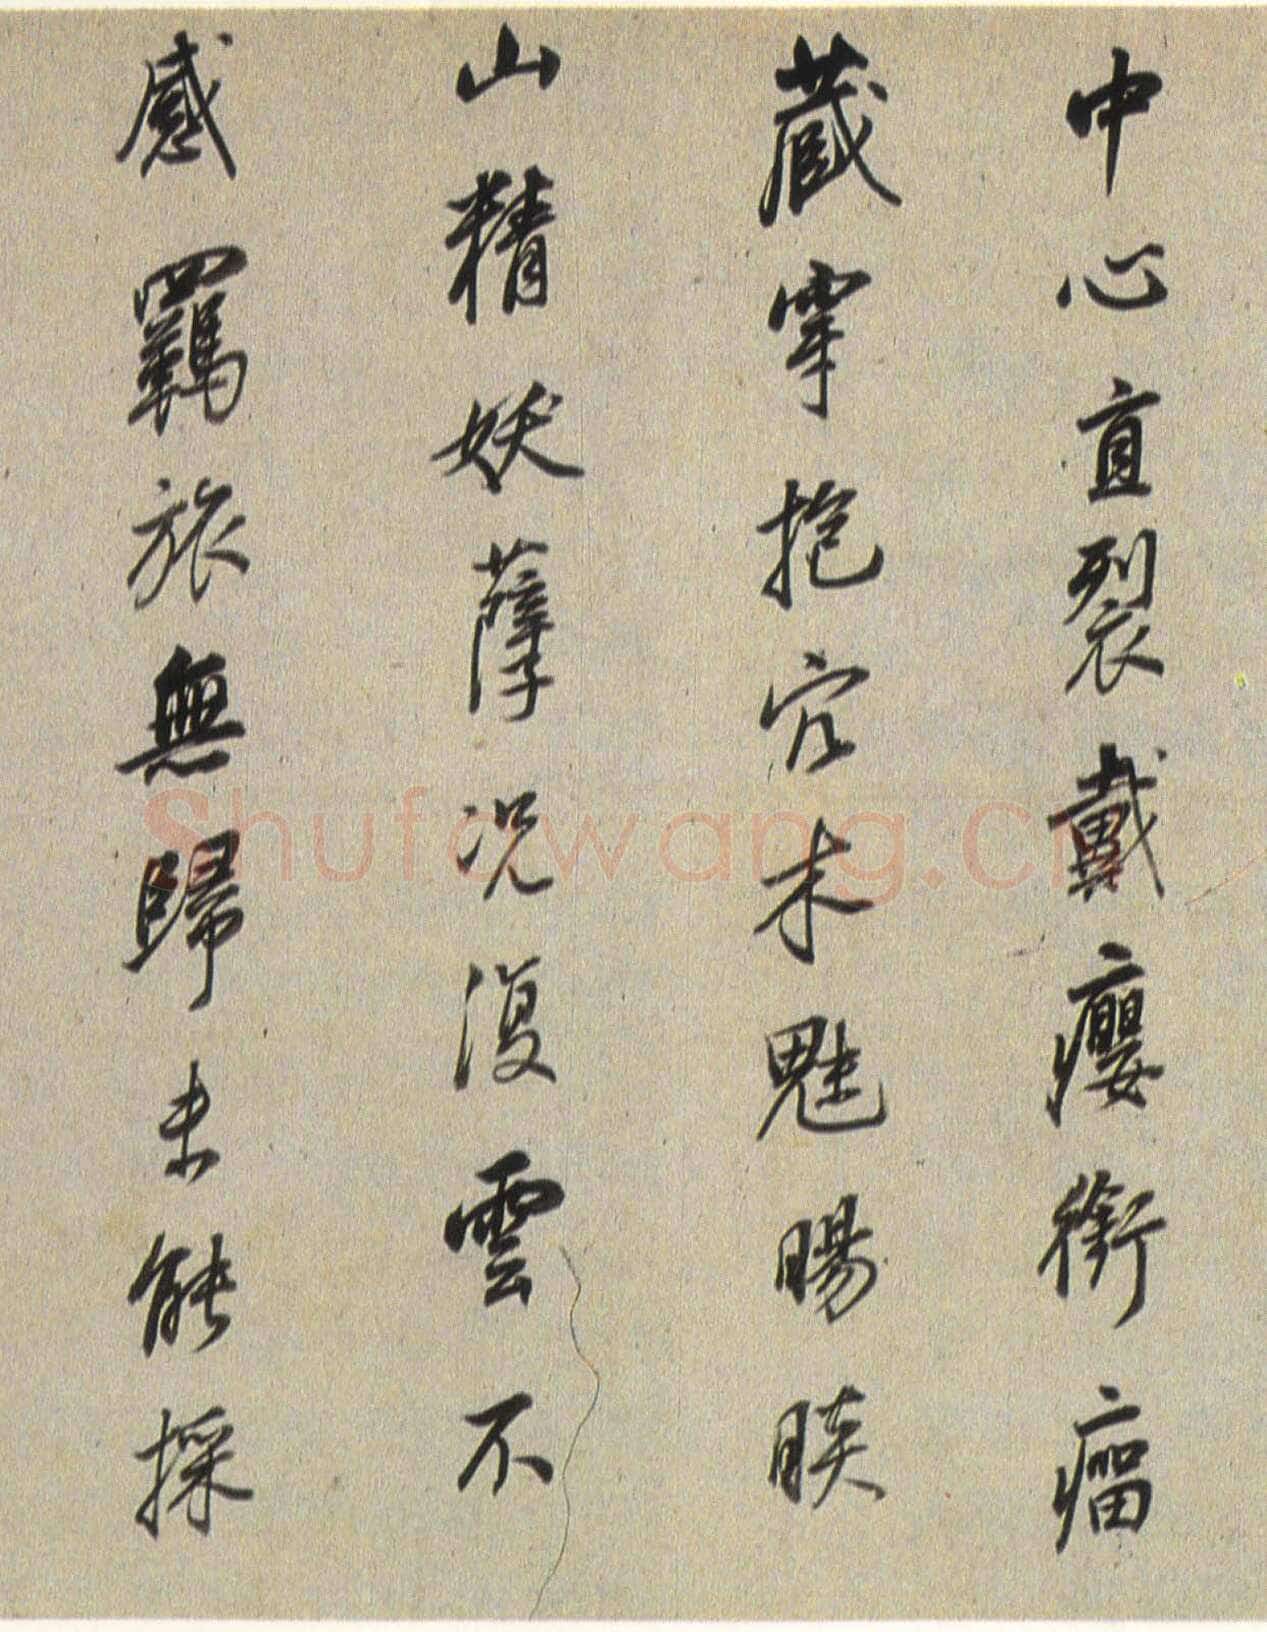 中心直裂戴癭銜瘤
藏穿抱穴木魅睗睒
山精妖孽况復雲不
感羈旅無歸未能採
Shufawang.cn